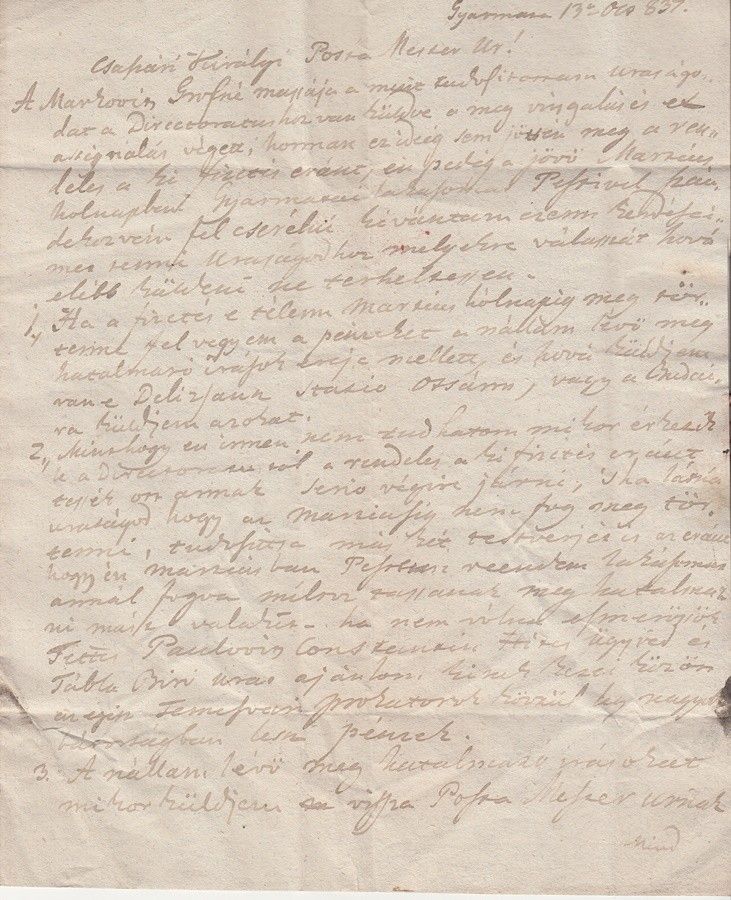 Gyarmata 13ª Oct 837.
Csatári Királyi Posta Mester Ur!
A Markovin Grofné massája a mint tudósitottam uraságo..
dat a Directoratushoz van küldve a meg visgalás és ex
assignálás végett, honnan ez ideig sem jött meg a ren,,
delés a ki fizetés eránt, én pedig a jövö Martius
holnapban Gyarmatai lakásomat Pestivel
fel cserélni kivántam ezenn kérdései..
met tenni Uraságodhoz melyekre válassát hová
elébb küldeni ne terheltessen.
1, Ha a fizetés e télenn Martius hólnapig meg tör..
tenne fel vegyem a pénzeket a nállam lévö meg
hatalmazó irások ereje mellett, és hová küldjem
van e Delizsanz Statio , vagy a Budai..
ra küldjem azokat.
2,, Minthogy én innen nem tudhatom mikor érkezik
a Directoratustól a rendelés a ki fizetés eránt
tessék ott annak serio végire járni, 's ha látná
uraságod hogy az Martiusig nem fog meg tör..
tenni, tudósitsa más két testverjét is az eránt
hogy én martiusban Pestenn leendem lakásomra
annál fogva méltoz tassanak meg hatalmaz
ni mást valakit - ha nem vólna esmerőjök
Tettes Paulovin Constantin Hites ügyved és
Tábla Biró urat ajánlom kinek kezei között
az egész Temesvári prokatorok közzül leg nagyobb
bátorságban lesz pénzek.
3. A nállam lévö meg hatalmazó irásokat
mikor küldjem vissza Posta Mester urnak
Mind